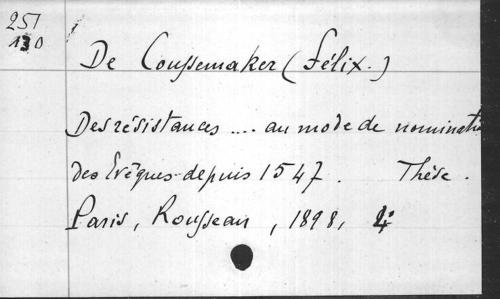 251
130
De Coussemaker (Félix.)
Des résistances .... au mode de nominati
des Evêques depuis 1547. Thèse.
Paris, Rousseau, 1898, 4°